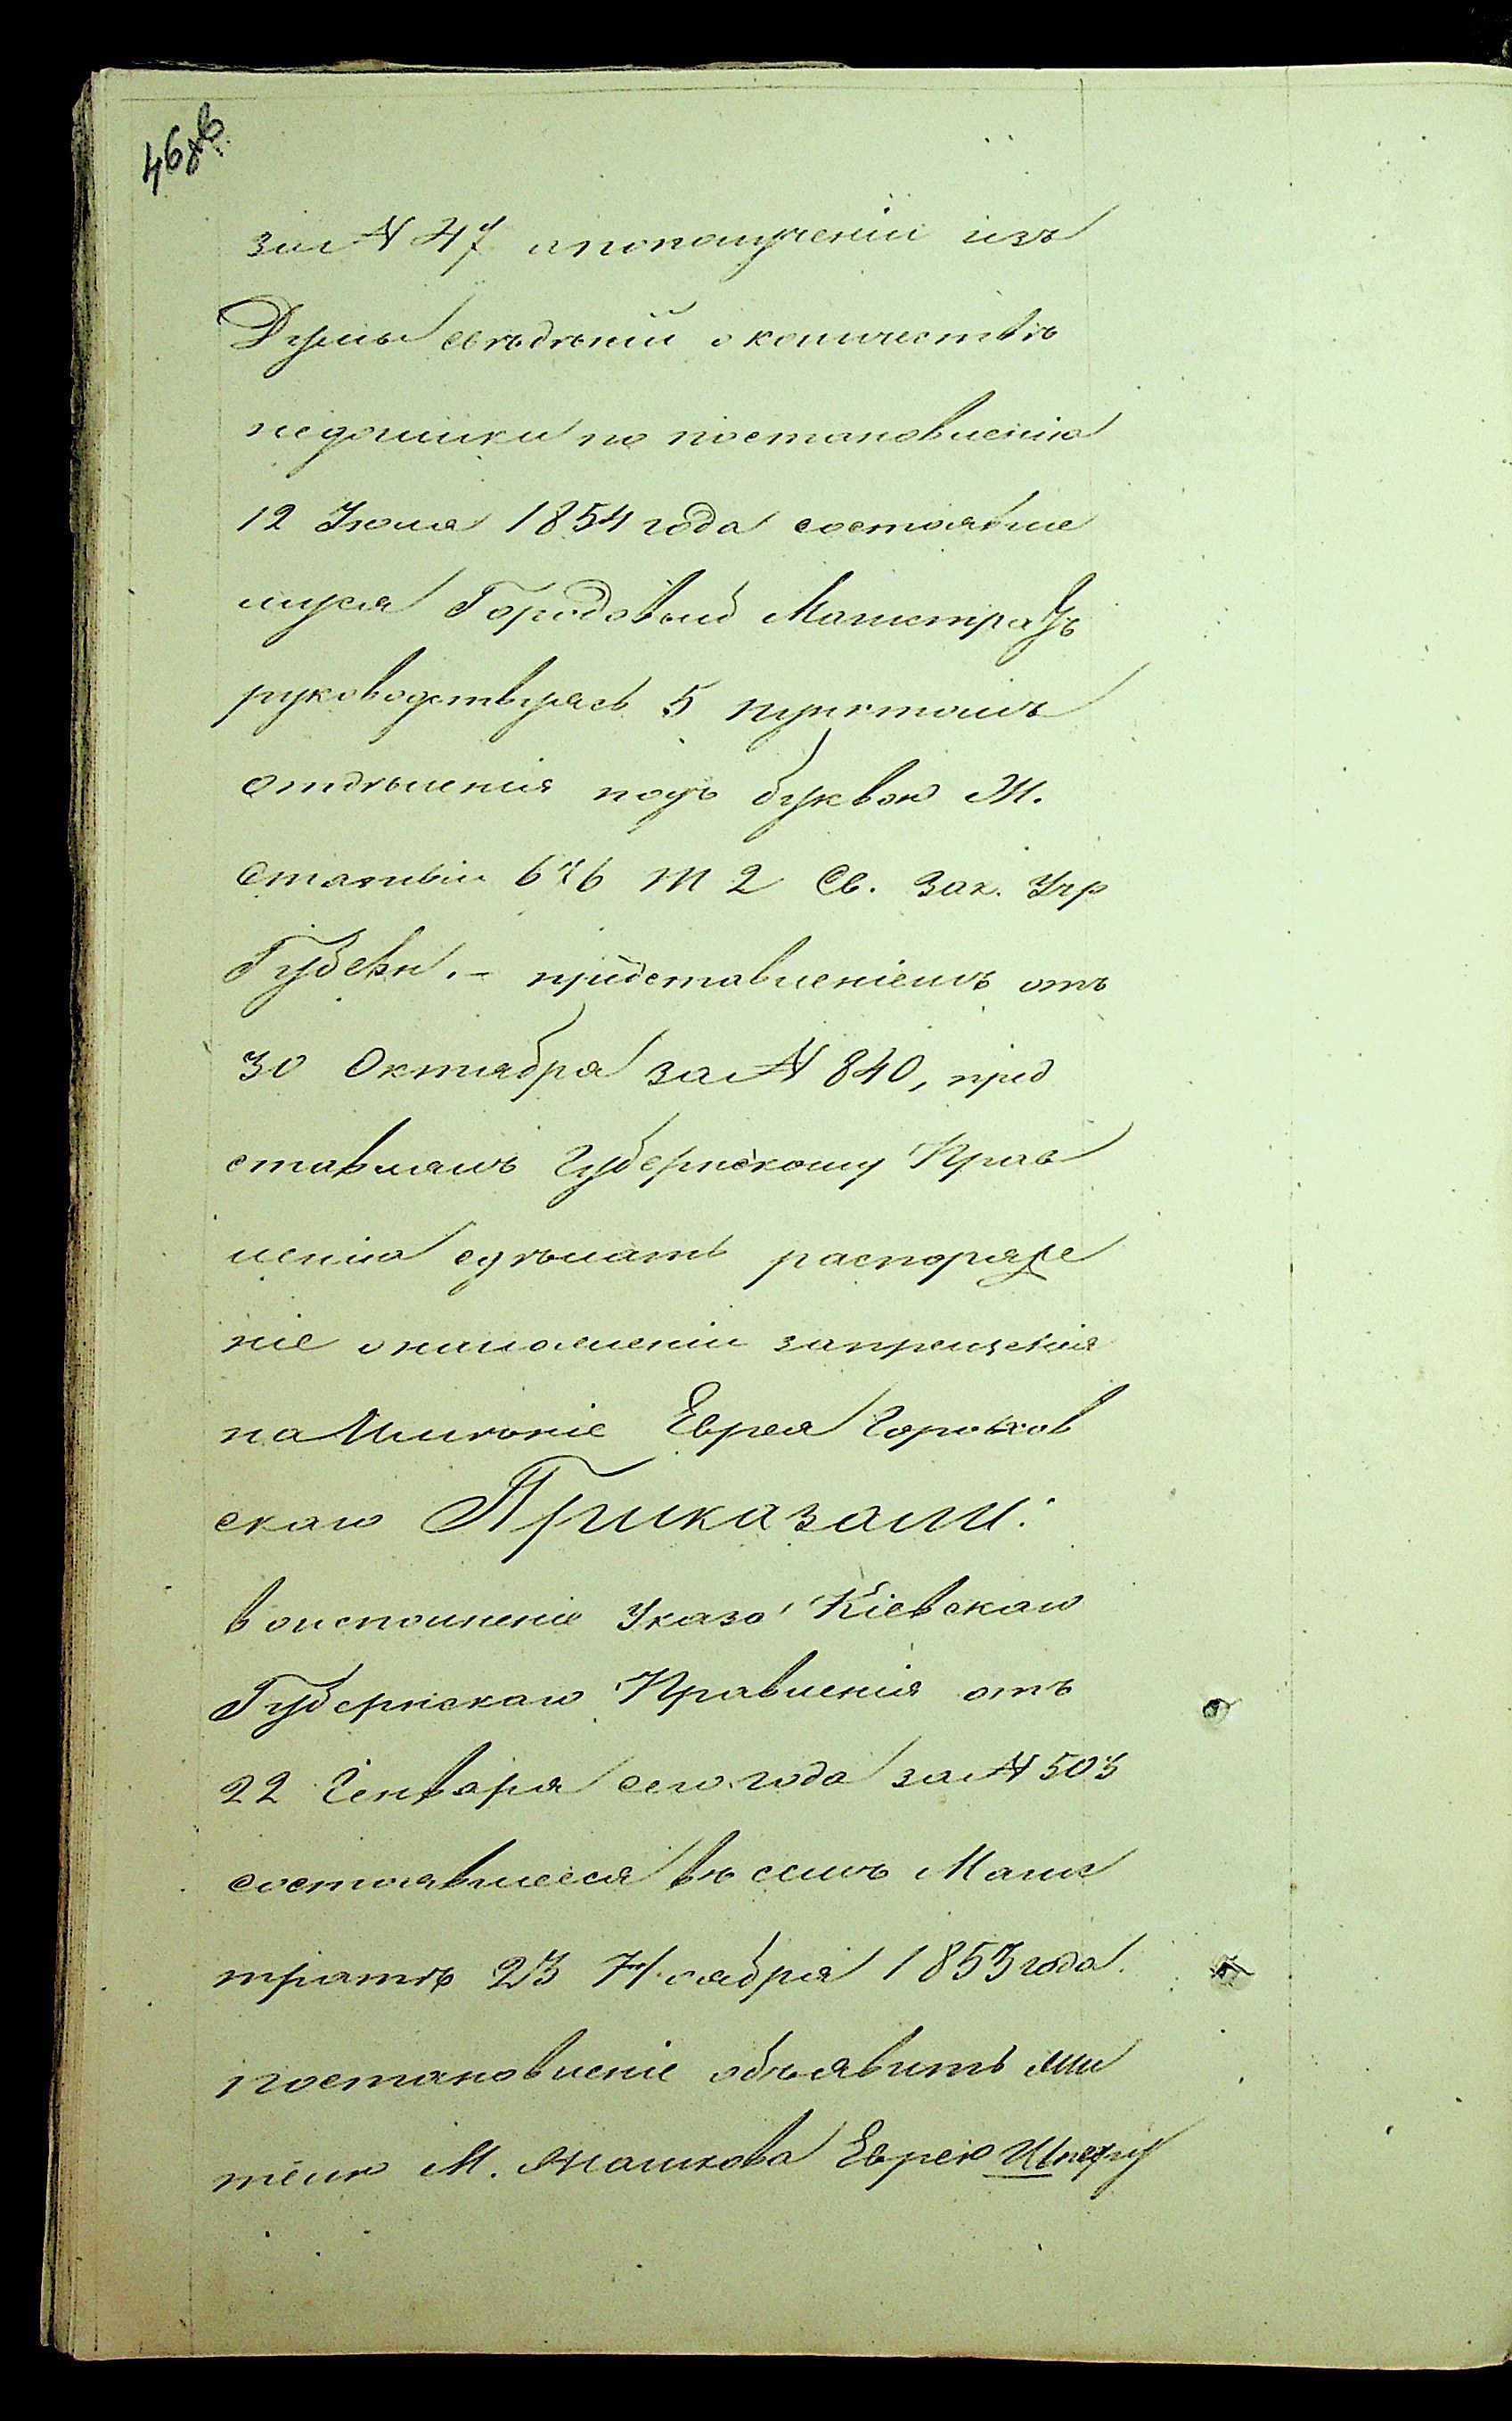 46 об.
за N 47 а по получении изъ
Думы сведеній о количестве
недоимки по постановленію
12 Іюля 1854 года состоявше
муся Городовый Магистратъ
руководствуясь 5 пунктомъ
отделенія подъ буквою М.
статьи 676 т 2 Св. Зак. Учр
Губерн. – представленіемъ отъ
30 Октября за N 840, пред
ставлялъ Губернскому Прав
ленію сделать распоряже
ніе о наложеніи запрещенія
на Именіе Еврея
скаго Приказали:
во исполненіе Указа Кіевскаго
Губернскаго Правленія отъ
22 Генваря сего года за N 503
состоявшееся въ семъ Магис
трате 23 Ноября 1853 года
постановленіе объявить жи
телю М. Жашкова Еврею